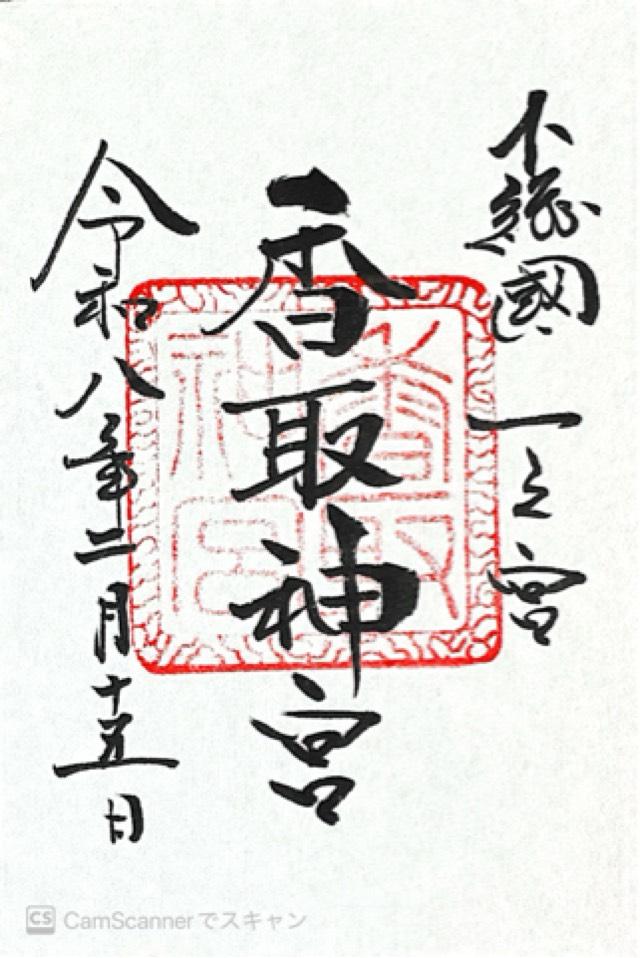 下総國 一之宮
香取神宮
香取神宮
令和八年二月十五日
CS CamScannerでスキャン